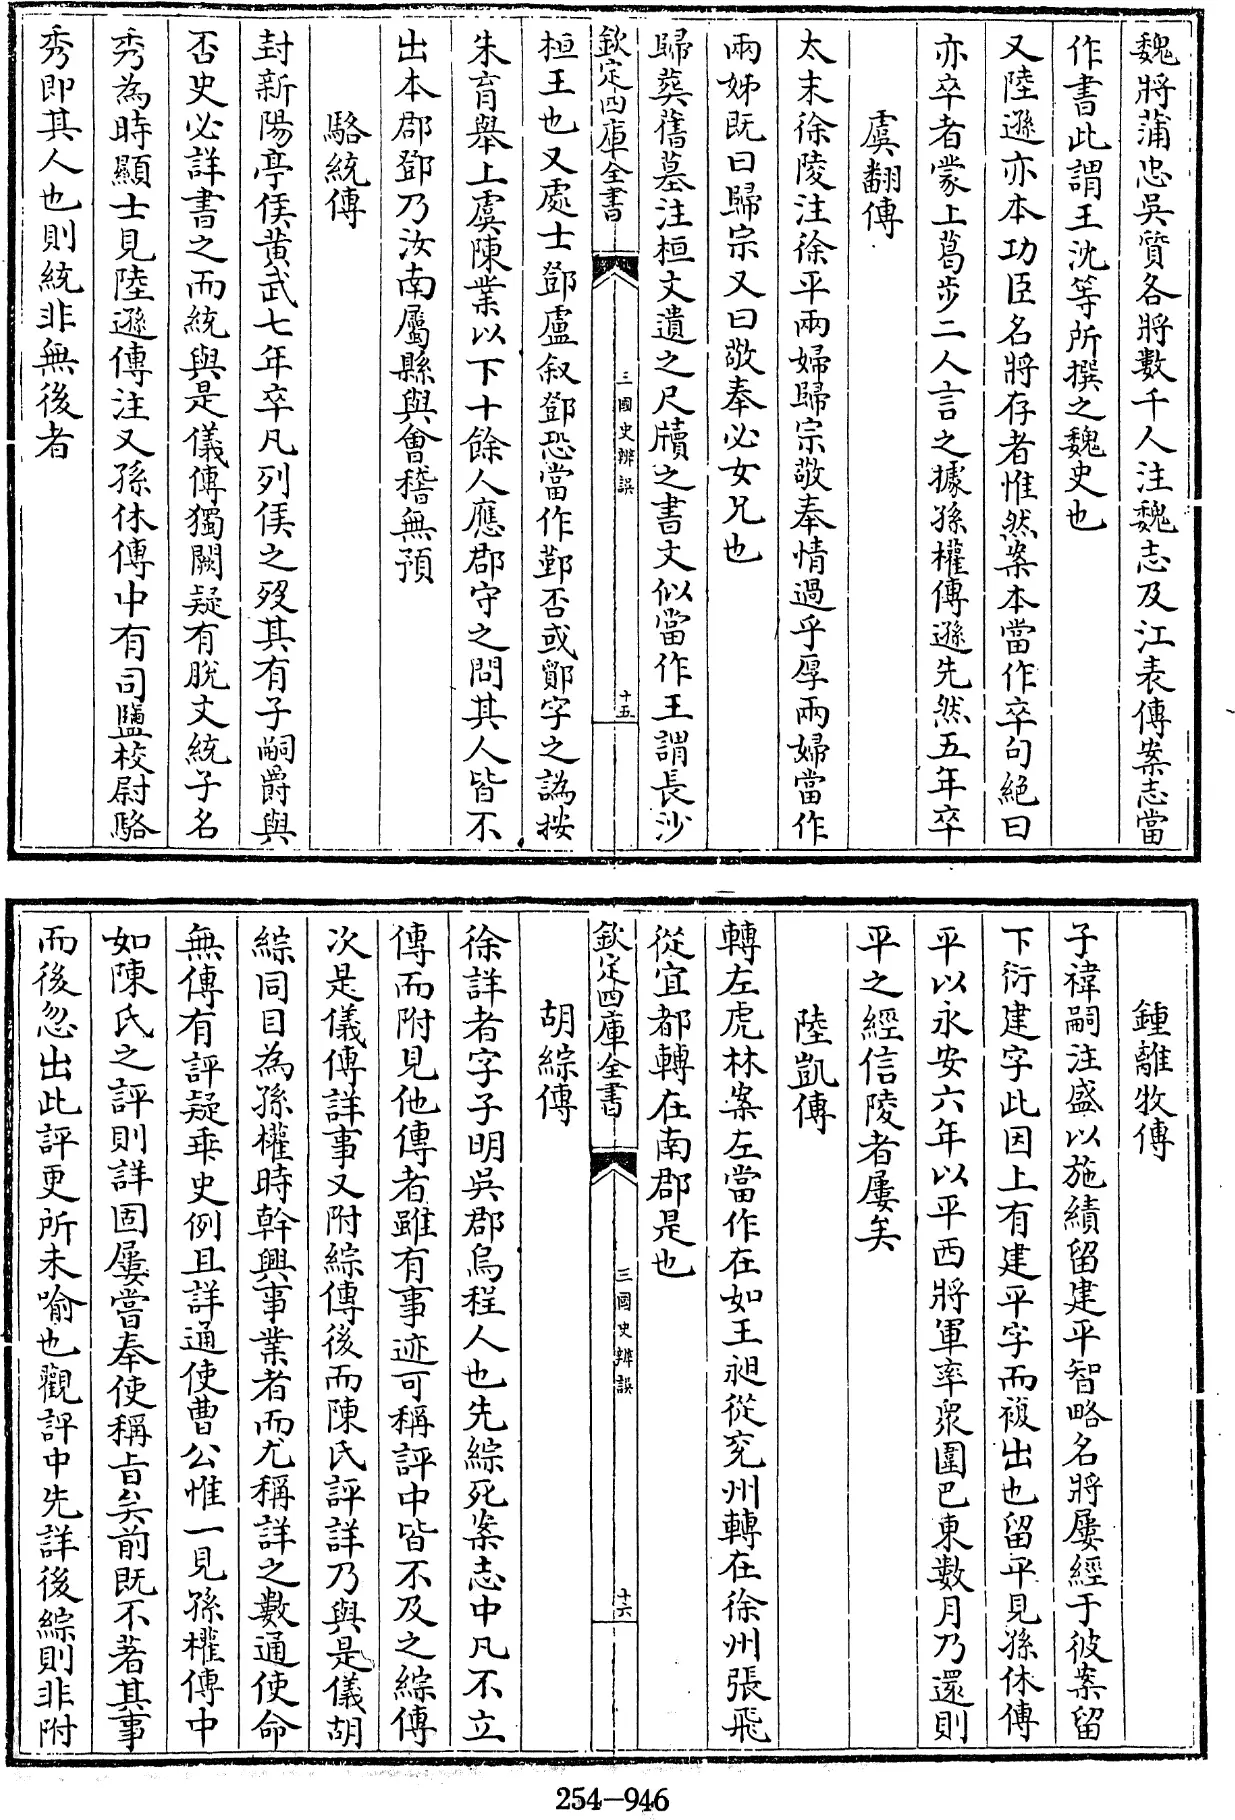 魏將蒲忠吳質各將數千人注魏志及江表傳案志當
作書此謂王沈等所撰之魏史也
又陸遜亦本功臣名將存者惟然案本當作卒句絶曰
亦卒者蒙上葛步二人言之據孫權傳遜先然五年卒
虞翻傳
太末徐陵注徐平兩婦歸宗敬奉情過乎厚兩婦當作
兩姊既曰歸宗又曰敬奉必女兄也
歸葬舊墓注桓文遺之尺牘之書文似當作王謂長沙
欽定四庫全書
三國史辨誤
十五
桓王也又處士鄧盧叙鄧恐當作鄞否或鄮字之譌按
朱育舉上虞陳業以下十餘人應郡守之問其人皆不
出本郡鄧乃汝南屬縣與會稽無預
駱統傳
封新陽亭侯黄武七年卒凡列侯之歿其有子嗣爵與
否史必詳書之而統與是儀傳獨闕疑有脫文統子名
秀為時顯士見陸遜傳注又孫休傳中有司鹽校尉駱
秀即其人也則統非無後者
鍾離牧傳
子禕嗣注盛以施績留建平智略名將屢經于彼案留
下衍建字此因上有建平字而複出也留平見孫休傳
平以永安六年以平西將軍率衆圍巴東數月乃還則
平之經信陵者屢矣
陸凱傳
轉左虎林案左當作在如王昶從兖州轉在徐州張飛
從宜都轉在南郡是也
欽定四庫全書
三國史辨誤
十六
胡綜傳
徐詳者字子明吳郡烏程人也先綜死案志中凡不立
傳而附見他傳者雖有事迹可稱評中皆不及之綜傳
次是儀傳詳事又附綜傳後而陳氏評詳乃與是儀胡
綜同目為孫權時幹興事業者而尤稱詳之數通使命
無傳有評疑乖史例且詳通使曹公惟一見孫權傳中
如陳氏之評則詳固屢嘗奉使稱旨矣前既不著其事
而後忽出此評更所未喻也觀評中先詳後綜則非附
254-946